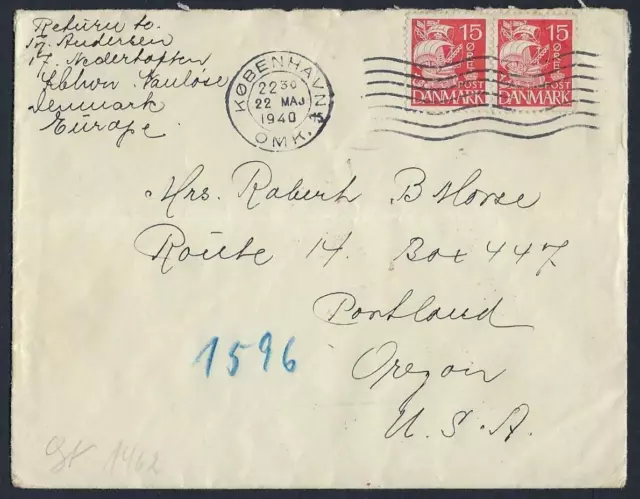 Return to.
Andersen
17. Nedertoften
Vanlose
Denmark
Europe
KØBENHAVN
2230
22 MAJ
1940
OMK.
15
ØRE
POST
DANMARK
15
ØRE
POST
DANMARK
Mrs. Robert B Morse
Route 14. Box 447
Portland
Oregon
U.S.A.
1596
1462